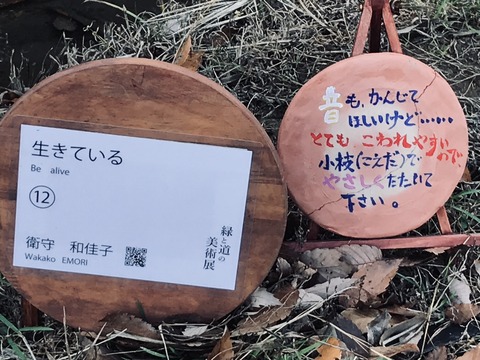 生きている
Be alive
⑫
衛守 和佳子
Wakako EMORI
緑と道の
美術展
音も、かんじて
ほしいけど……
とても こわれやすいので
小枝(こえだ)で
やさしくたたいて
下さい。